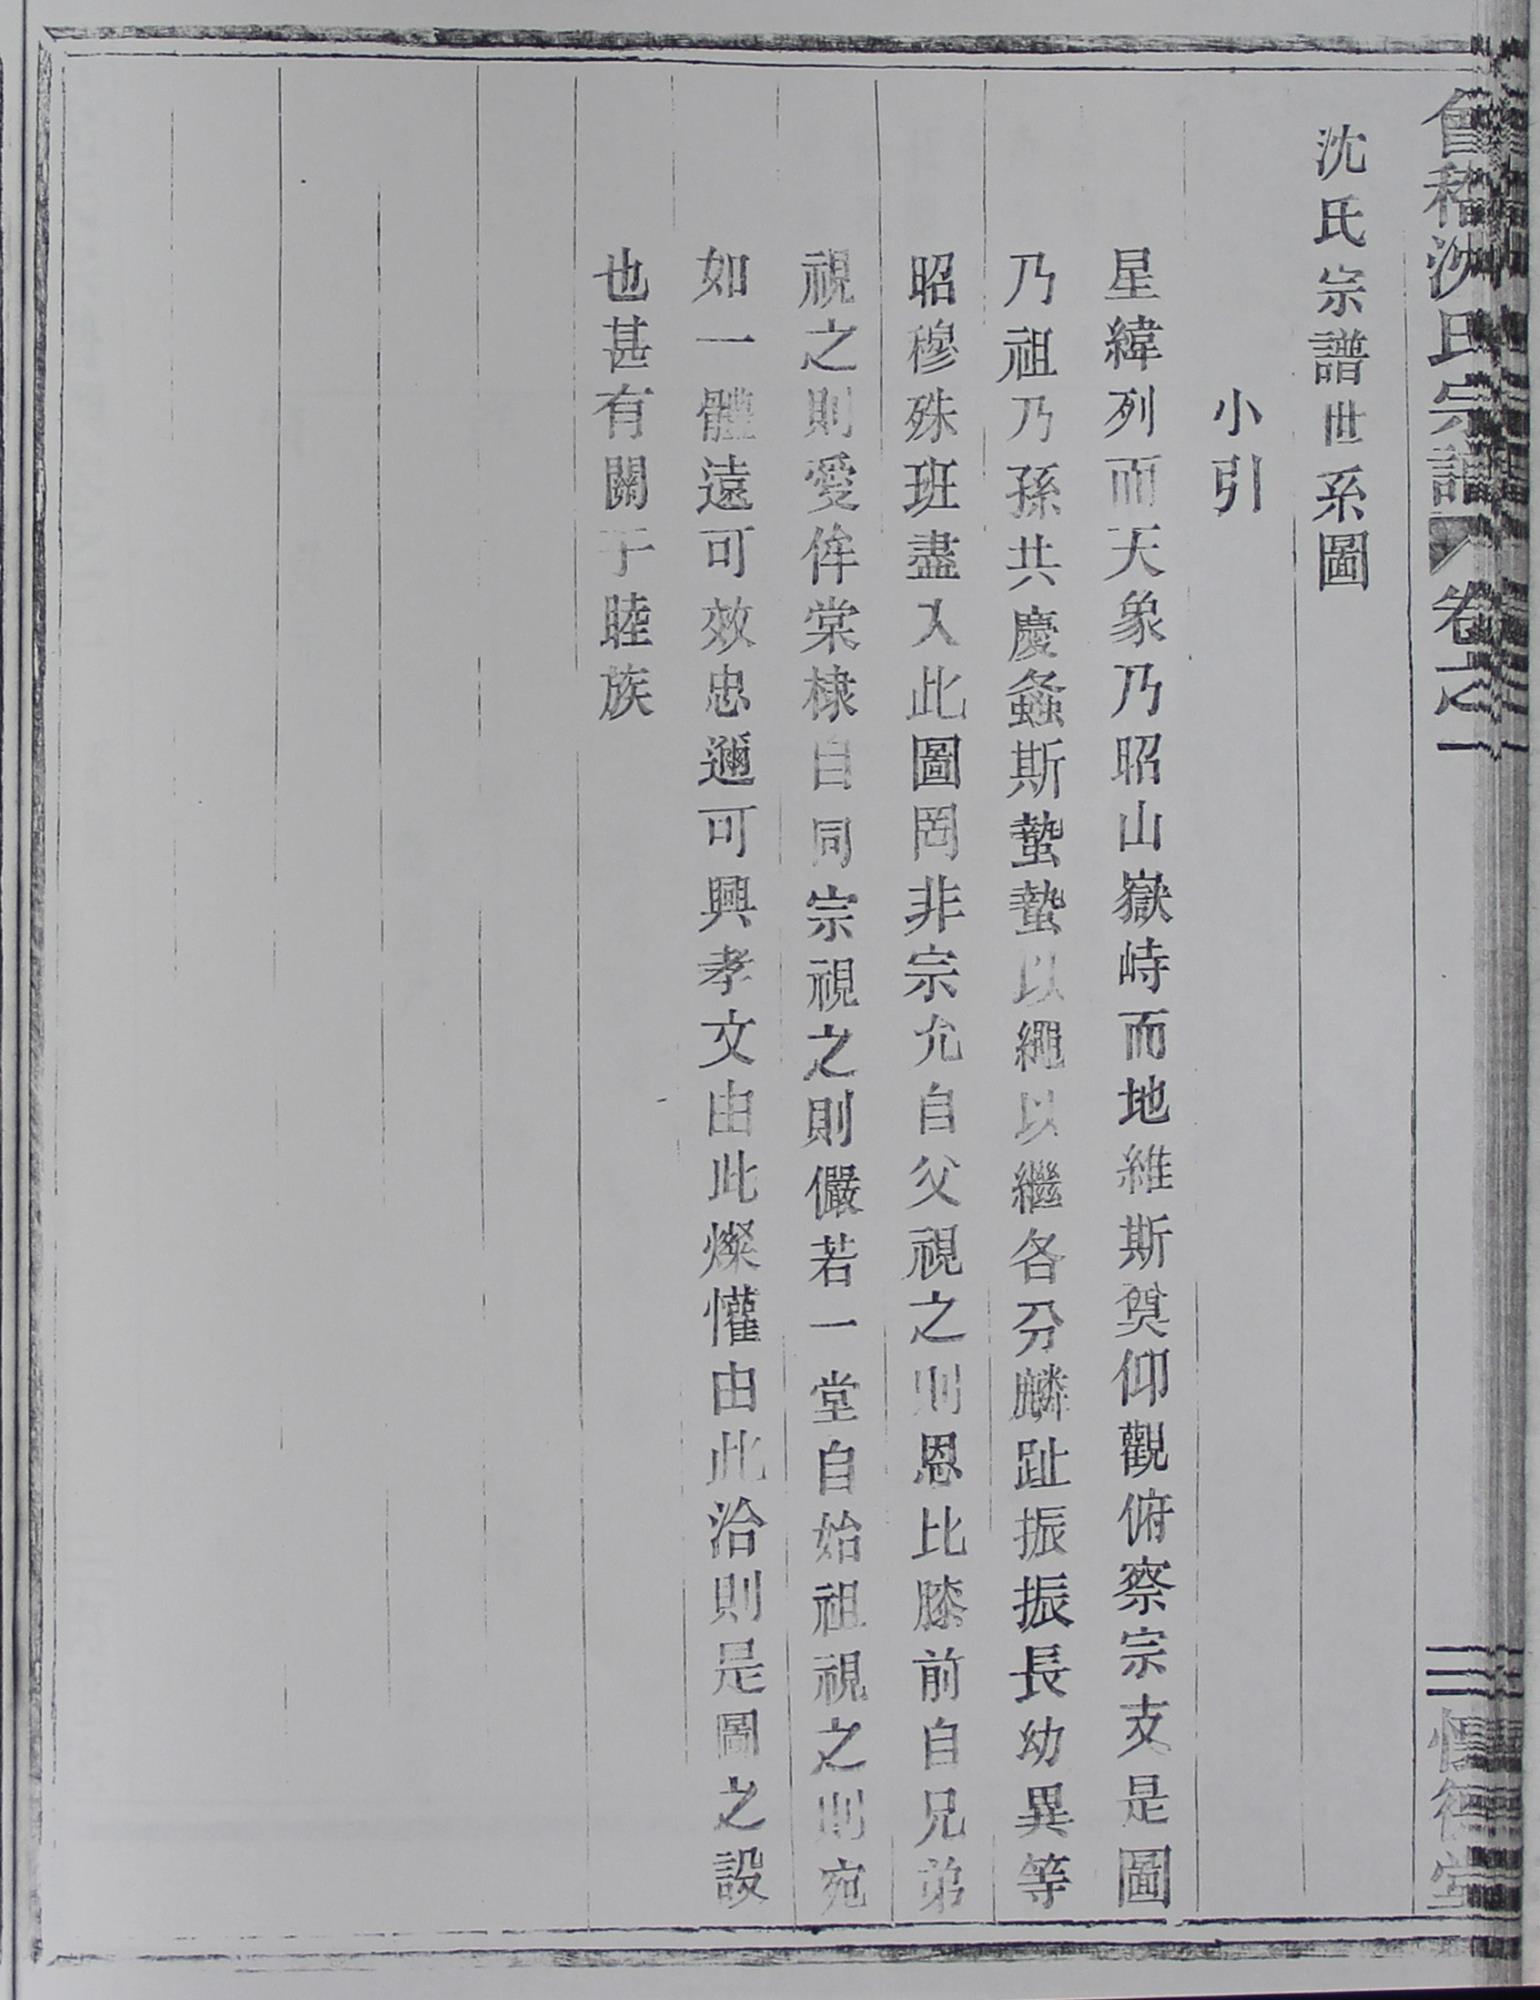 會稽沈氏宗譜 卷之一 三 德堂
沈氏宗譜世系圖
小引
星緯列而天象乃昭山嶽峙而地維斯奠仰觀俯察宗支是圖
乃祖乃孫共慶螽斯蟄蟄以繩以繼各分麟趾振振長幼異等
昭穆殊班盡入此圖罔非宗允自父視之則恩比膝前自兄弟
視之則愛侔棠棣自同宗視之則儼若一堂自始祖視之則宛
如一體遠可效忠邇可興孝文由此燦懽由此洽則是圖之設
也甚有關于睦族